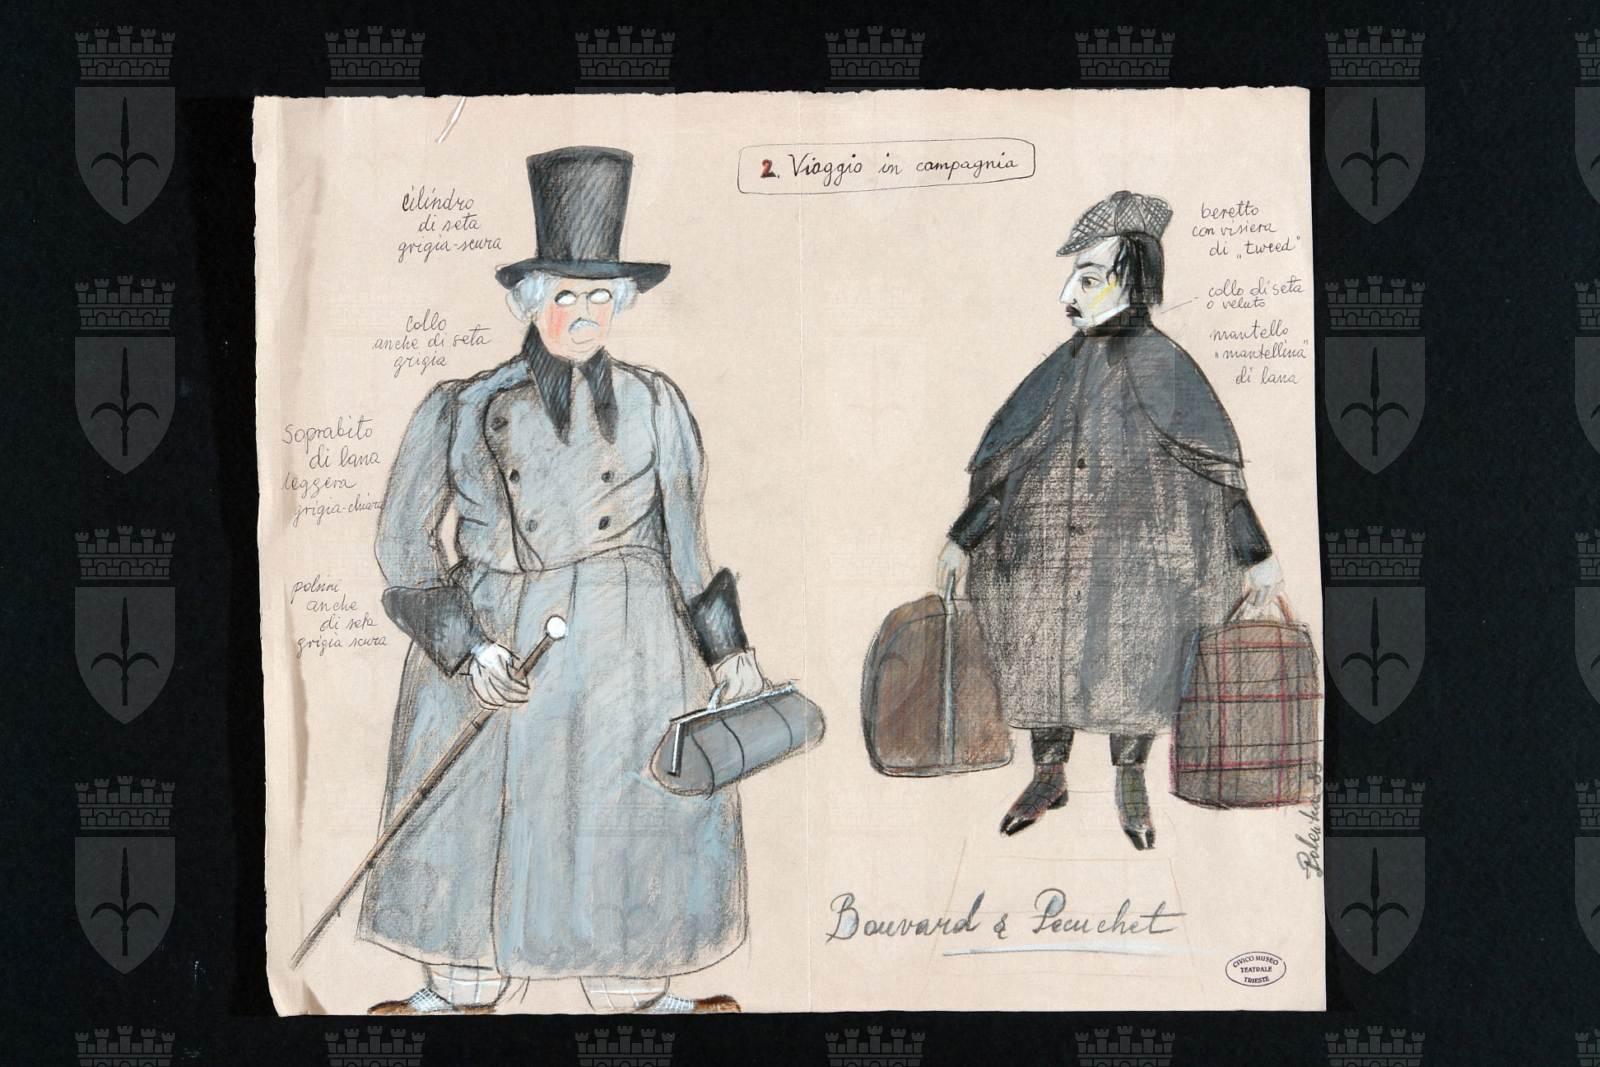 2. Viaggio in campagnia
cilindro
di seta
grigia-scura
collo
anche di seta
grigia
soprabito
di lana
leggera
grigia-chiara
polsini
anche
di seta
grigia scura
beretto
con visiera
di „tweed"
collo di seta
o veluto
mantello
„mantellina"
di lana
Bouvard & Pecuchet
CIVICO MUSEO
TEATRALE
TRIESTE